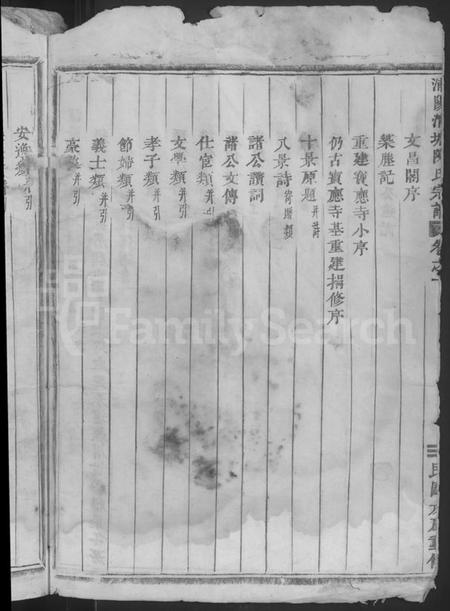 陳氏宗譜 卷之一
民國 重修
文昌閣序
築塵記
重建寶應寺小序
仍古寶應寺基重建捐修序
十景原題并詩
八景詩
諸公讚詞
諸公文傳
仕宦類并引
文學類并引
孝子類并引
節婦類并引
義士類并引
并引
安 類并引
FamilySearch